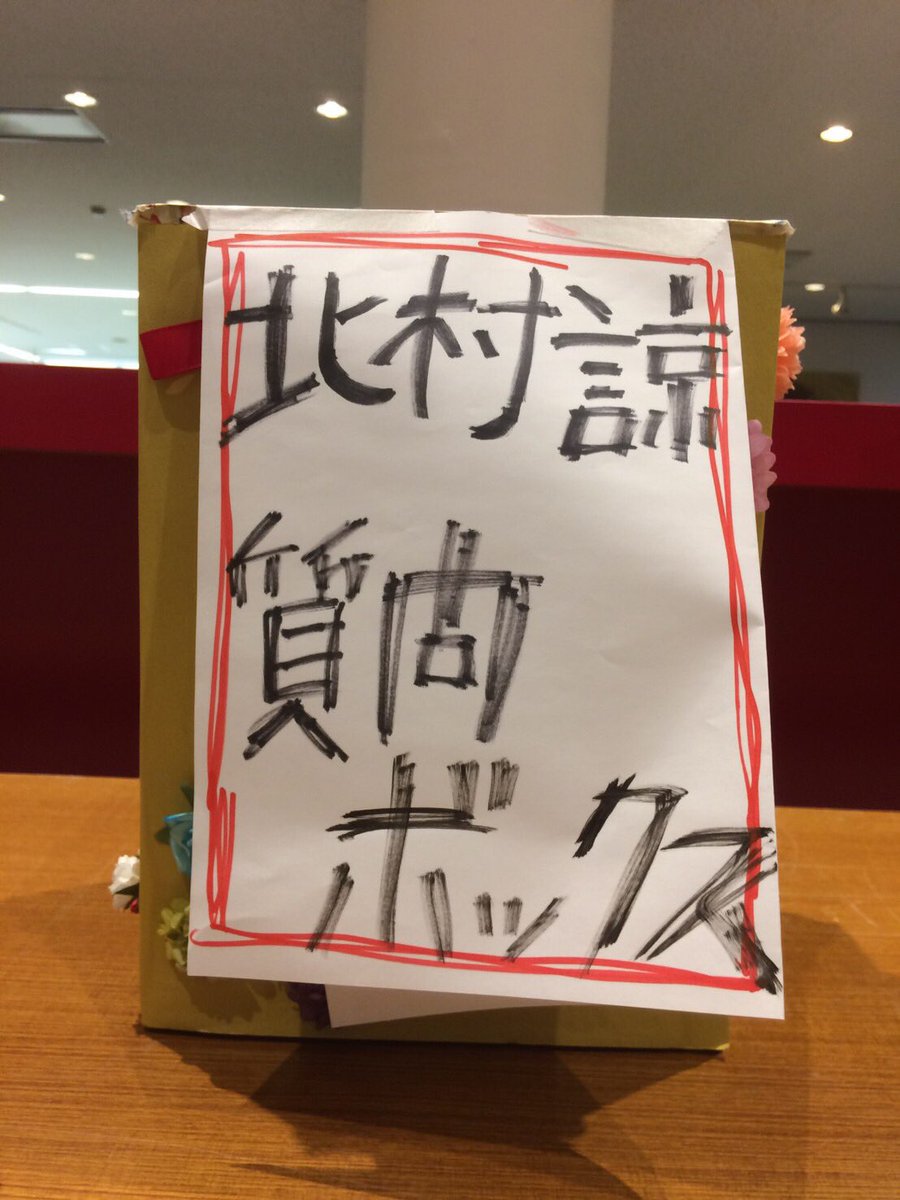 北村諒
質問
ボックス